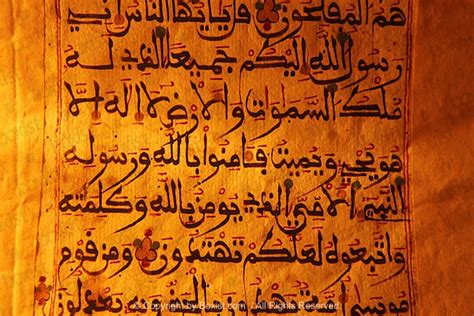 هم المفلحون قل يايها الناس اني
رسول الله اليكم جميعا الذي له
ملك السموات والارض لا اله الا
هو يحي ويميت فامنوا بالله ورسوله
النبي الامي الذي يومن بالله وكلمته
واتبعوه لعلكم تهتدون ومن قوم
يعدلون
© Copyright by Boxist.com / All Rights Reserved